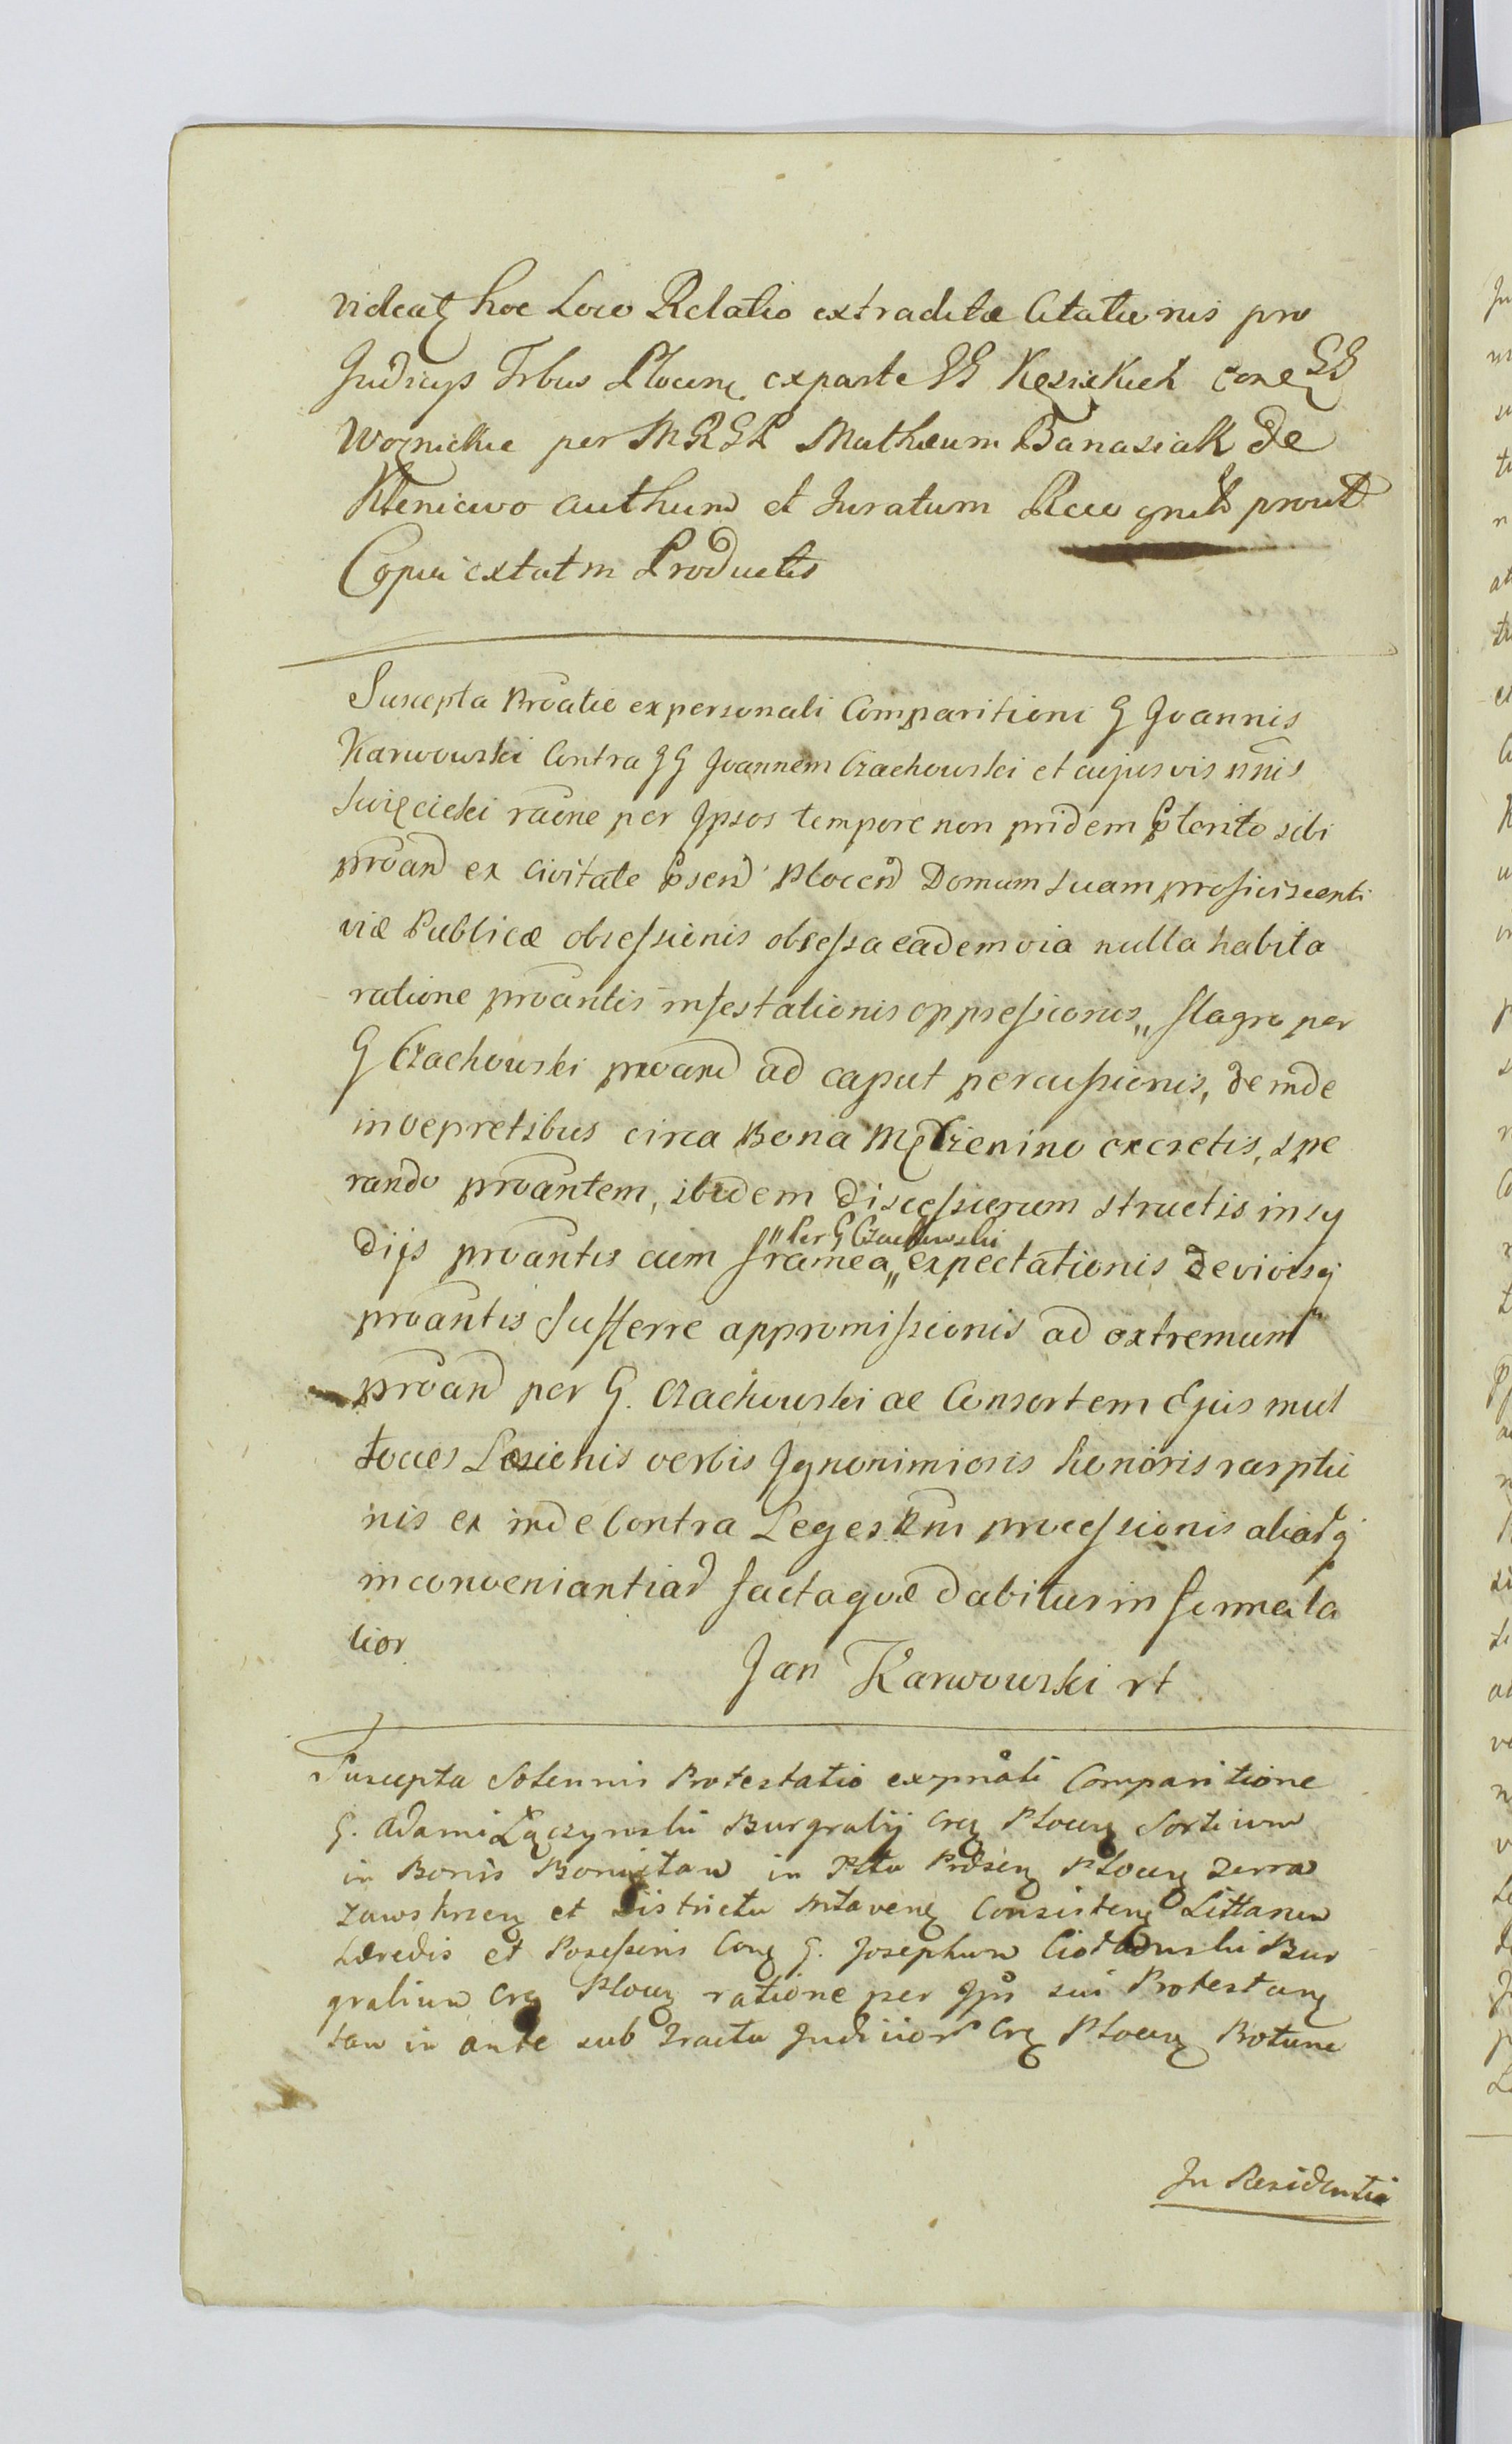 videatɋ hoc Loco Relatio extraditæ Citationis pro
Judicÿs Trbus Plocenɋ exparte GG Kęsickich conɋ GG
Woznickie per MRGP Mathæum Banasiak de
Kleniewo authum et Juratum Recognit prout
Copia extat in Productis
Suscepta Proatio ex personali Comparitioni G Joannis
Karwowski Contra GG Joannem Czachowski et cujusvis nnis
Swięcicki raone per Ipsos tempore non pridem pterito sibi
proand ex Civitate psend Plocend Domum suam proficiscenti
viæ Publicæ obsessionis obsessa eadem via nulla habita
ratione proantis infestationis oppressionis,, flagro per
G Czachowski proand ad caput percussionis, deinde
in vepretibus circa Bona Męczienino excretis, spe
rando proantem, ibidem discessurum structis insy
dijs proantis cum framea,, expectationis de vivisq
,, Per G Czachowski
proantis sufferre appromissionis ad extremum
proand per G. Czachowski ac Consortem Ejus mul
toties Læsionis verbis Ignonimiosis honoris rarptio
nis ex inde Contra Leges Rni processionis aliasq
inconveniantias facta quæ dabitur in forma la
tior
Jan Karwowski rt
Suscepta Solennis Protestatio ex pnali Comparitione
G. Adami Łączynski Burgrabij Crɋ Plocenɋ Sortium
in Bonis in Pttu Pdsenɋ Plocenɋ Terra
Zawskrzenɋ et Districtu Mlavenɋ Consistenɋ Littanen
Hæredis et Possessoris Conɋ G. Josephum Bur
grabium Crɋ Plocenɋ ratione per Ipm sui Protestanɋ
tan in ante sub Tractu Judicior Crɋ Plocenɋ Potune
In Residentia